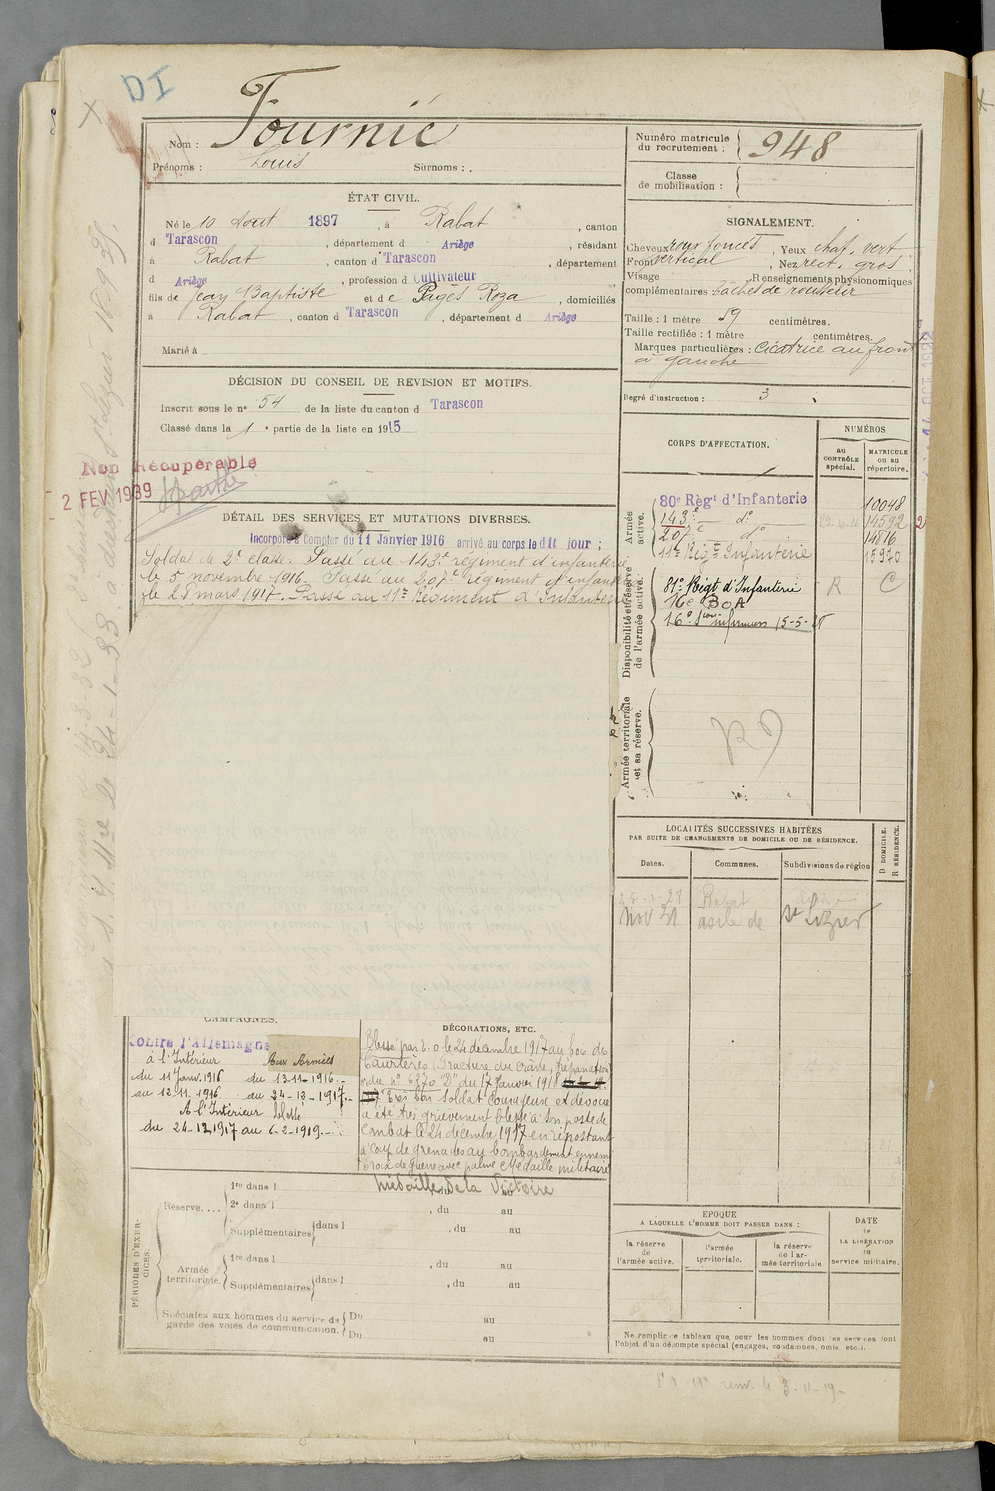 DI
Nom : Fournié
Prénoms : Louis Surnoms : .
Numéro matricule du recrutement : 948
Classe de mobilisation :
ÉTAT CIVIL.
Né le 10 Aout 1897, à Rabat, canton
d Tarascon, département d Ariège, résidant
à Rabat, canton d Tarascon, département
d Ariège, profession d Cultivateur
fils de Jean Baptiste et de Pagès Roza, domiciliés
à Rabat, canton d Tarascon, département d Ariège
Marié à
SIGNALEMENT.
Cheveux roux foncés, Yeux chat. vert
Front vertical, Nez rect. gros
Visage Renseignements physionomiques
complémentaires : tâches de rousseur
Taille : 1 mètre 59 centimètres.
Taille rectifiée : 1 mètre centimètres.
Marques particulières : Cicatrice au front
à gauche
Degré d'instruction : 3
DÉCISION DU CONSEIL DE REVISION ET MOTIFS.
Inscrit sous le n° 54 de la liste du canton d Tarascon
Classé dans la 1e partie de la liste en 1915
Non Récupérable
2 FEV 1939
DÉTAIL DES SERVICES ET MUTATIONS DIVERSES.
Incorporé à Compter du 11 Janvier 1916 arrivé au corps le dit jour ;
Soldat de 2e classe. Passé au 143e régiment d'infanterie
le 5 novembre 1916. Passé au 207e régiment d'infant
le 28 mars 1917. Passé au 11e Régiment d'Infanterie
CORPS D'AFFECTATION.
NUMÉROS
au CONTRÔLE spécial.
MATRICULE ou au répertoire.
Armée active.
80e Règt d'Infanterie 10048
143e do 14592
207e do 14816
11e Régt Infanterie 15970
Disponibilité et réserve de l'armée active.
81e Régt d'Infanterie R C
16e BOA
16e Son infirmiers 15-5-
Armée territoriale et sa réserve.
LOCALITÉS SUCCESSIVES HABITÉES
PAR SUITE DE CHANGEMENTS DE DOMICILE OU DE RÉSIDENCE.
Dates. Communes. Subdivisions de région
D DOMICILE.
R RÉSIDENCE.
Rabat
Nov 31 asile de St Lizier
CAMPAGNES.
Contre l'Allemagne
à l'Intérieur Aux Armées
du 11 Janv. 1916 du 13-11-1916.-
au 12.11.1916 au 24-12-1917.-
A l'Intérieur blessé
du 24-12-1917 au 6-2-1919.-
DÉCORATIONS, ETC.
Blessé par E. O le 24 décembre 1917 au bois des
Caurières (fracture du crâne, trépanation)
ordre No 6370 "D" du 17 Janvier 1918
Très bon Soldat Courageux et dévoué
a été très grièvement blessé à son poste de
combat le 24 décembre 1917 en ripostant
à coup de grenades au bombardement ennemi
Croix de guerre avec palme Médaille militaire
Médaille de la Victoire
PÉRIODES D'EXERCICES.
Réserve....
1re dans l
2e dans l , du au
Supplémentaires dans l , du au
Armée territoriale.
1re dans l , du au
Supplémentaires dans l , du au
Spéciales aux hommes du service de garde des voies de communication.
Du au
Du au
EPOQUE
A LAQUELLE L'HOMME DOIT PASSER DANS :
la réserve de l'armée active.
l'armée territoriale.
la réserve de l'armée territoriale
DATE de LA LIBÉRATION du service militaire.
Ne remplir ce tableau que pour les hommes dont les services font
l'objet d'un décompte spécial (engagés, condamnés, omis, etc.).